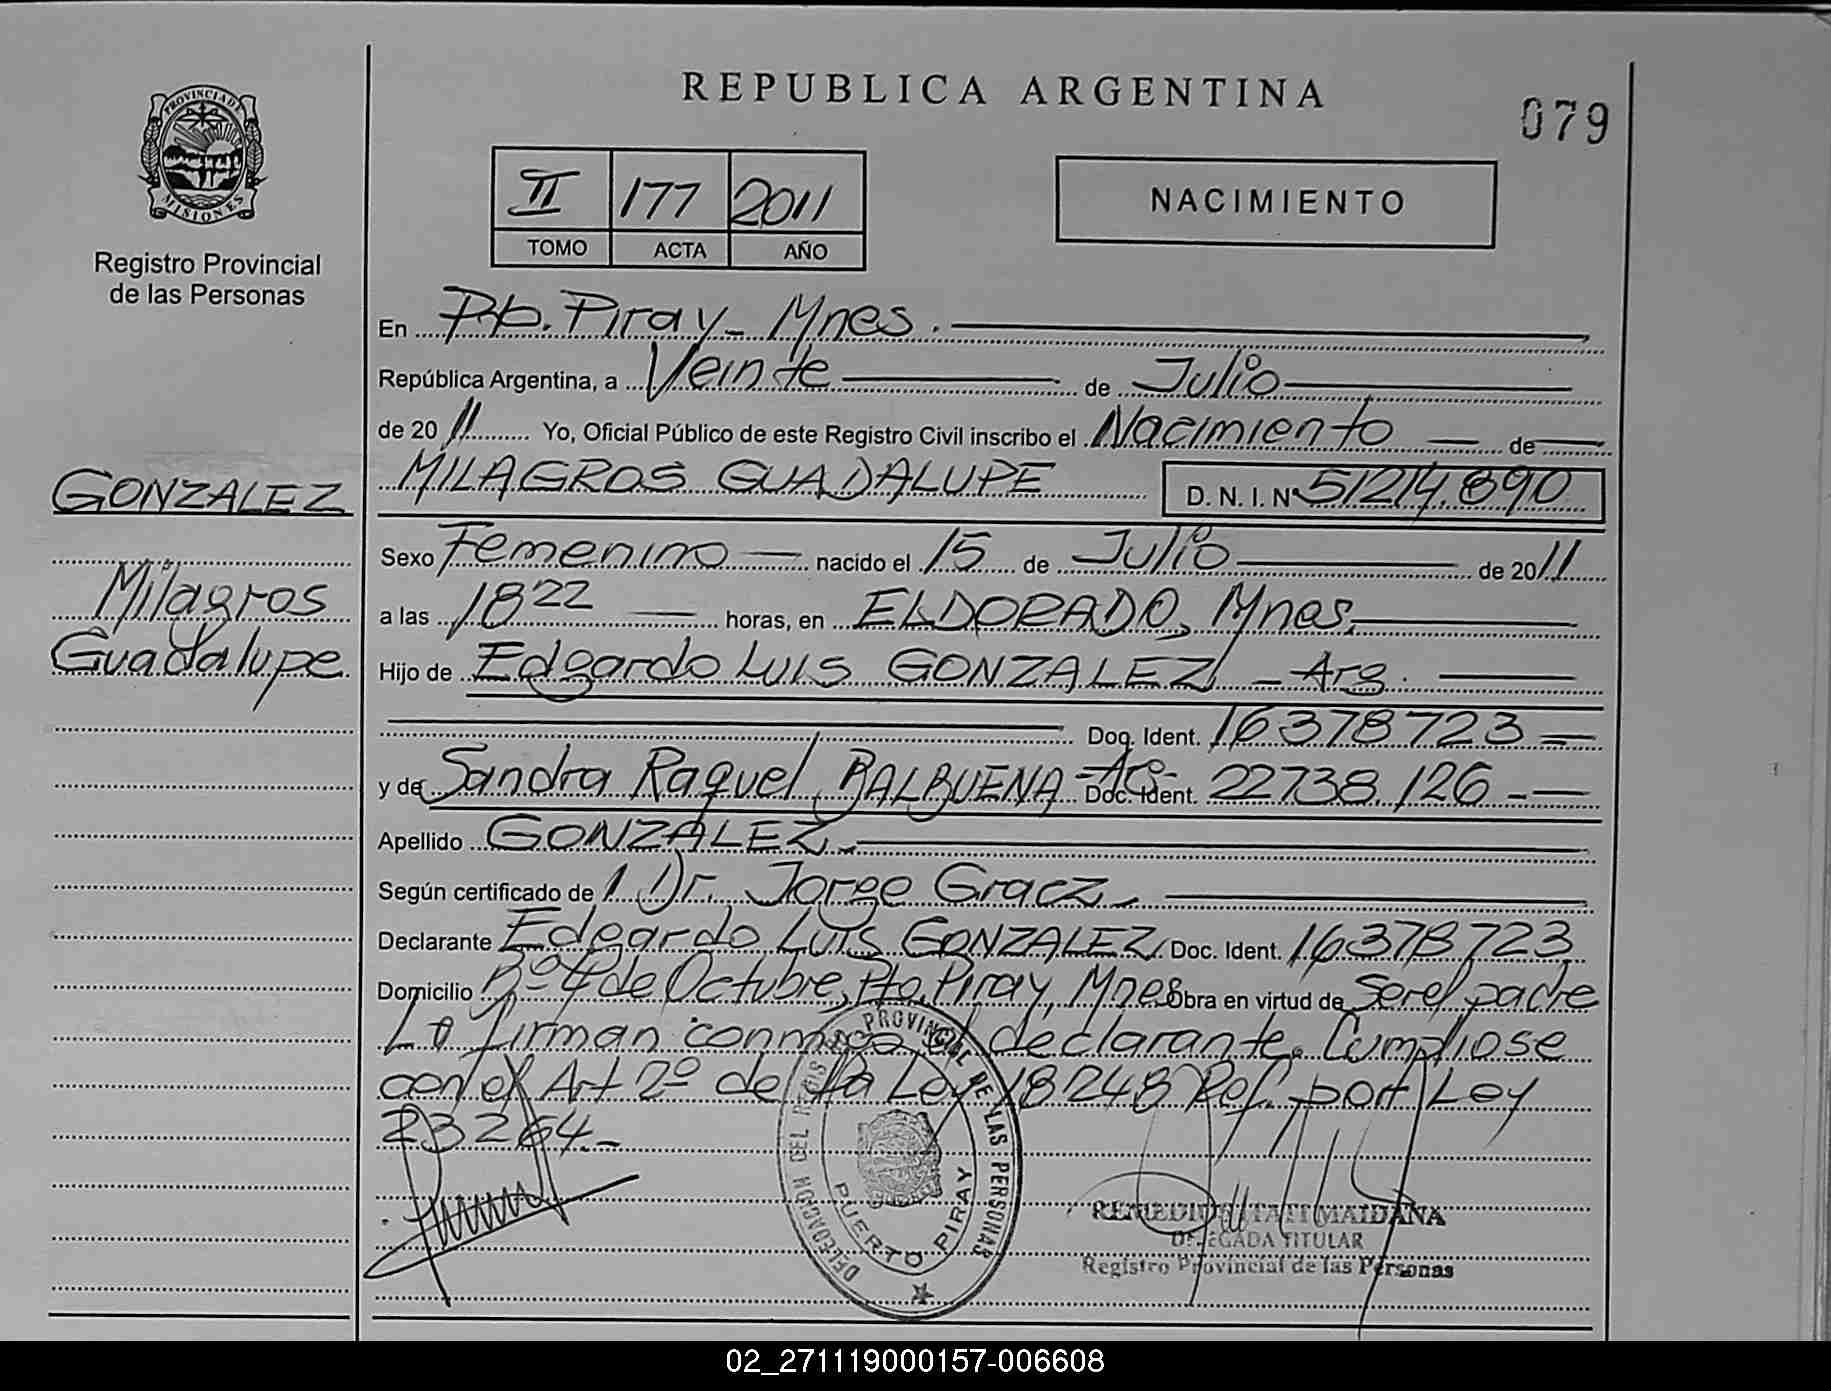 REPUBLICA ARGENTINA
079
PROVINCIA DE
MISIONES
Registro Provincial
de las Personas
II 177 2011
TOMO ACTA AÑO
NACIMIENTO
En Pto. Piray - Mnes.
República Argentina, a Veinte de Julio
de 2011 Yo, Oficial Público de este Registro Civil inscribo el Nacimiento de
MILAGROS GUADALUPE D. N. I. Nº 51214.890
GONZALEZ
Milagros
Guadalupe
Sexo Femenino nacido el 15 de Julio de 2011
a las 18 22 horas, en ELDORADO, Mnes.
Hijo de Edgardo Luis GONZALEZ - Arg.
Doc. Ident. 16378723
y de Sandra Raquel BALBUENA - Arg - Doc. Ident. 22738.126 -
Apellido GONZALEZ.
Según certificado de 1 Dr. Jorge Gracz.
Declarante Edgardo Luis GONZALEZ Doc. Ident. 16378723
Domicilio Bº 4 de Octubre, Pto. Piray, Mnes Obra en virtud de Ser el padre
La firman conmigo el declarante. Cumpliose
con el Art 2º de la Ley 18248 Ref. por Ley
23264.-
DELEGACION DEL REGISTRO PROVINCIAL DE LAS PERSONAS
PUERTO PIRAY
MAIDANA
DELEGADA TITULAR
Registro Provincial de las Personas
02_271119000157-006608